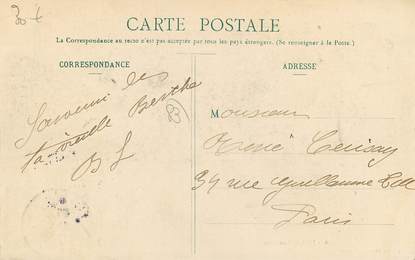 30 €
CARTE POSTALE
La Correspondance au recto n'est pas acceptée par tous les pays étrangers. (Se renseigner à la Poste.)
CORRESPONDANCE
ADRESSE
Souvenir de
ta vieille Berthe
Monsieur
René
34 rue Guillaume
Paris